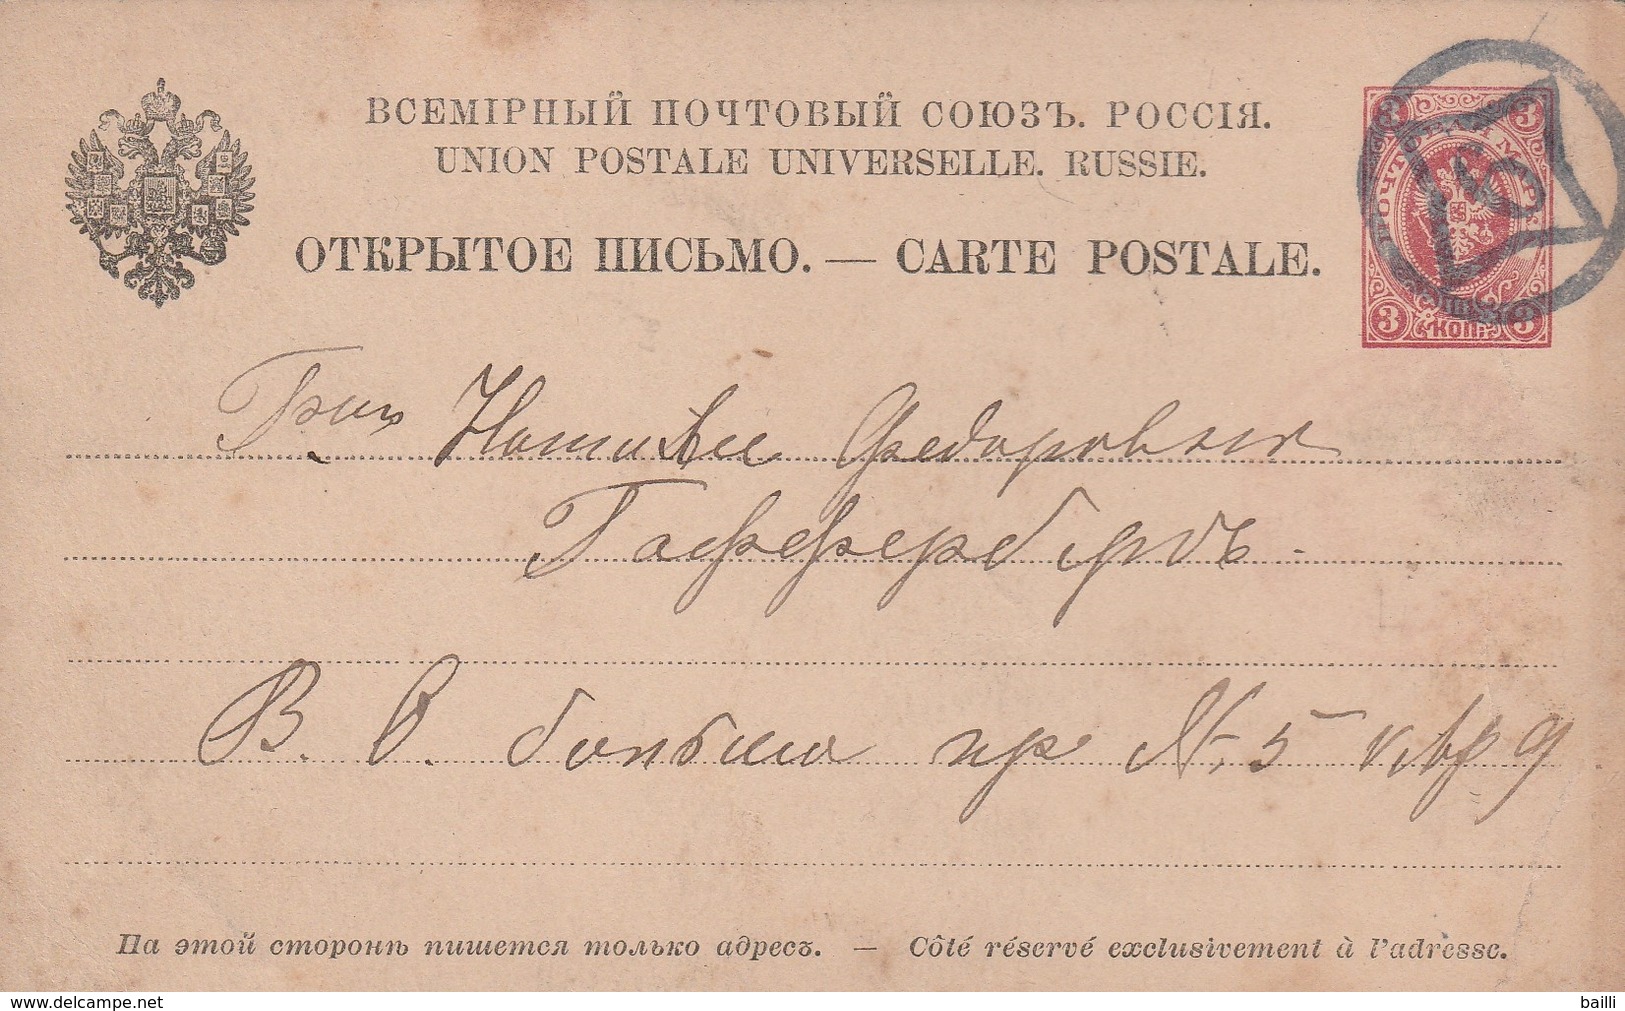 ВСЕМІРНЫЙ ПОЧТОВЫЙ СОЮЗЪ. РОССІЯ.
UNION POSTALE UNIVERSELLE. RUSSIE.
ОТКРЫТОЕ ПИСЬМО. — CARTE POSTALE.
3 3
ПОЧТОВАЯ МАРКА
3 КОП. 3
5
Наталіи Федоровнѣ
Гаффербергъ
В. О. большой пр № 5 кв 9
На этой сторонѣ пишется только адресъ. — Côté réservé exclusivement à l'adresse.
www.delcampe.net
bailli